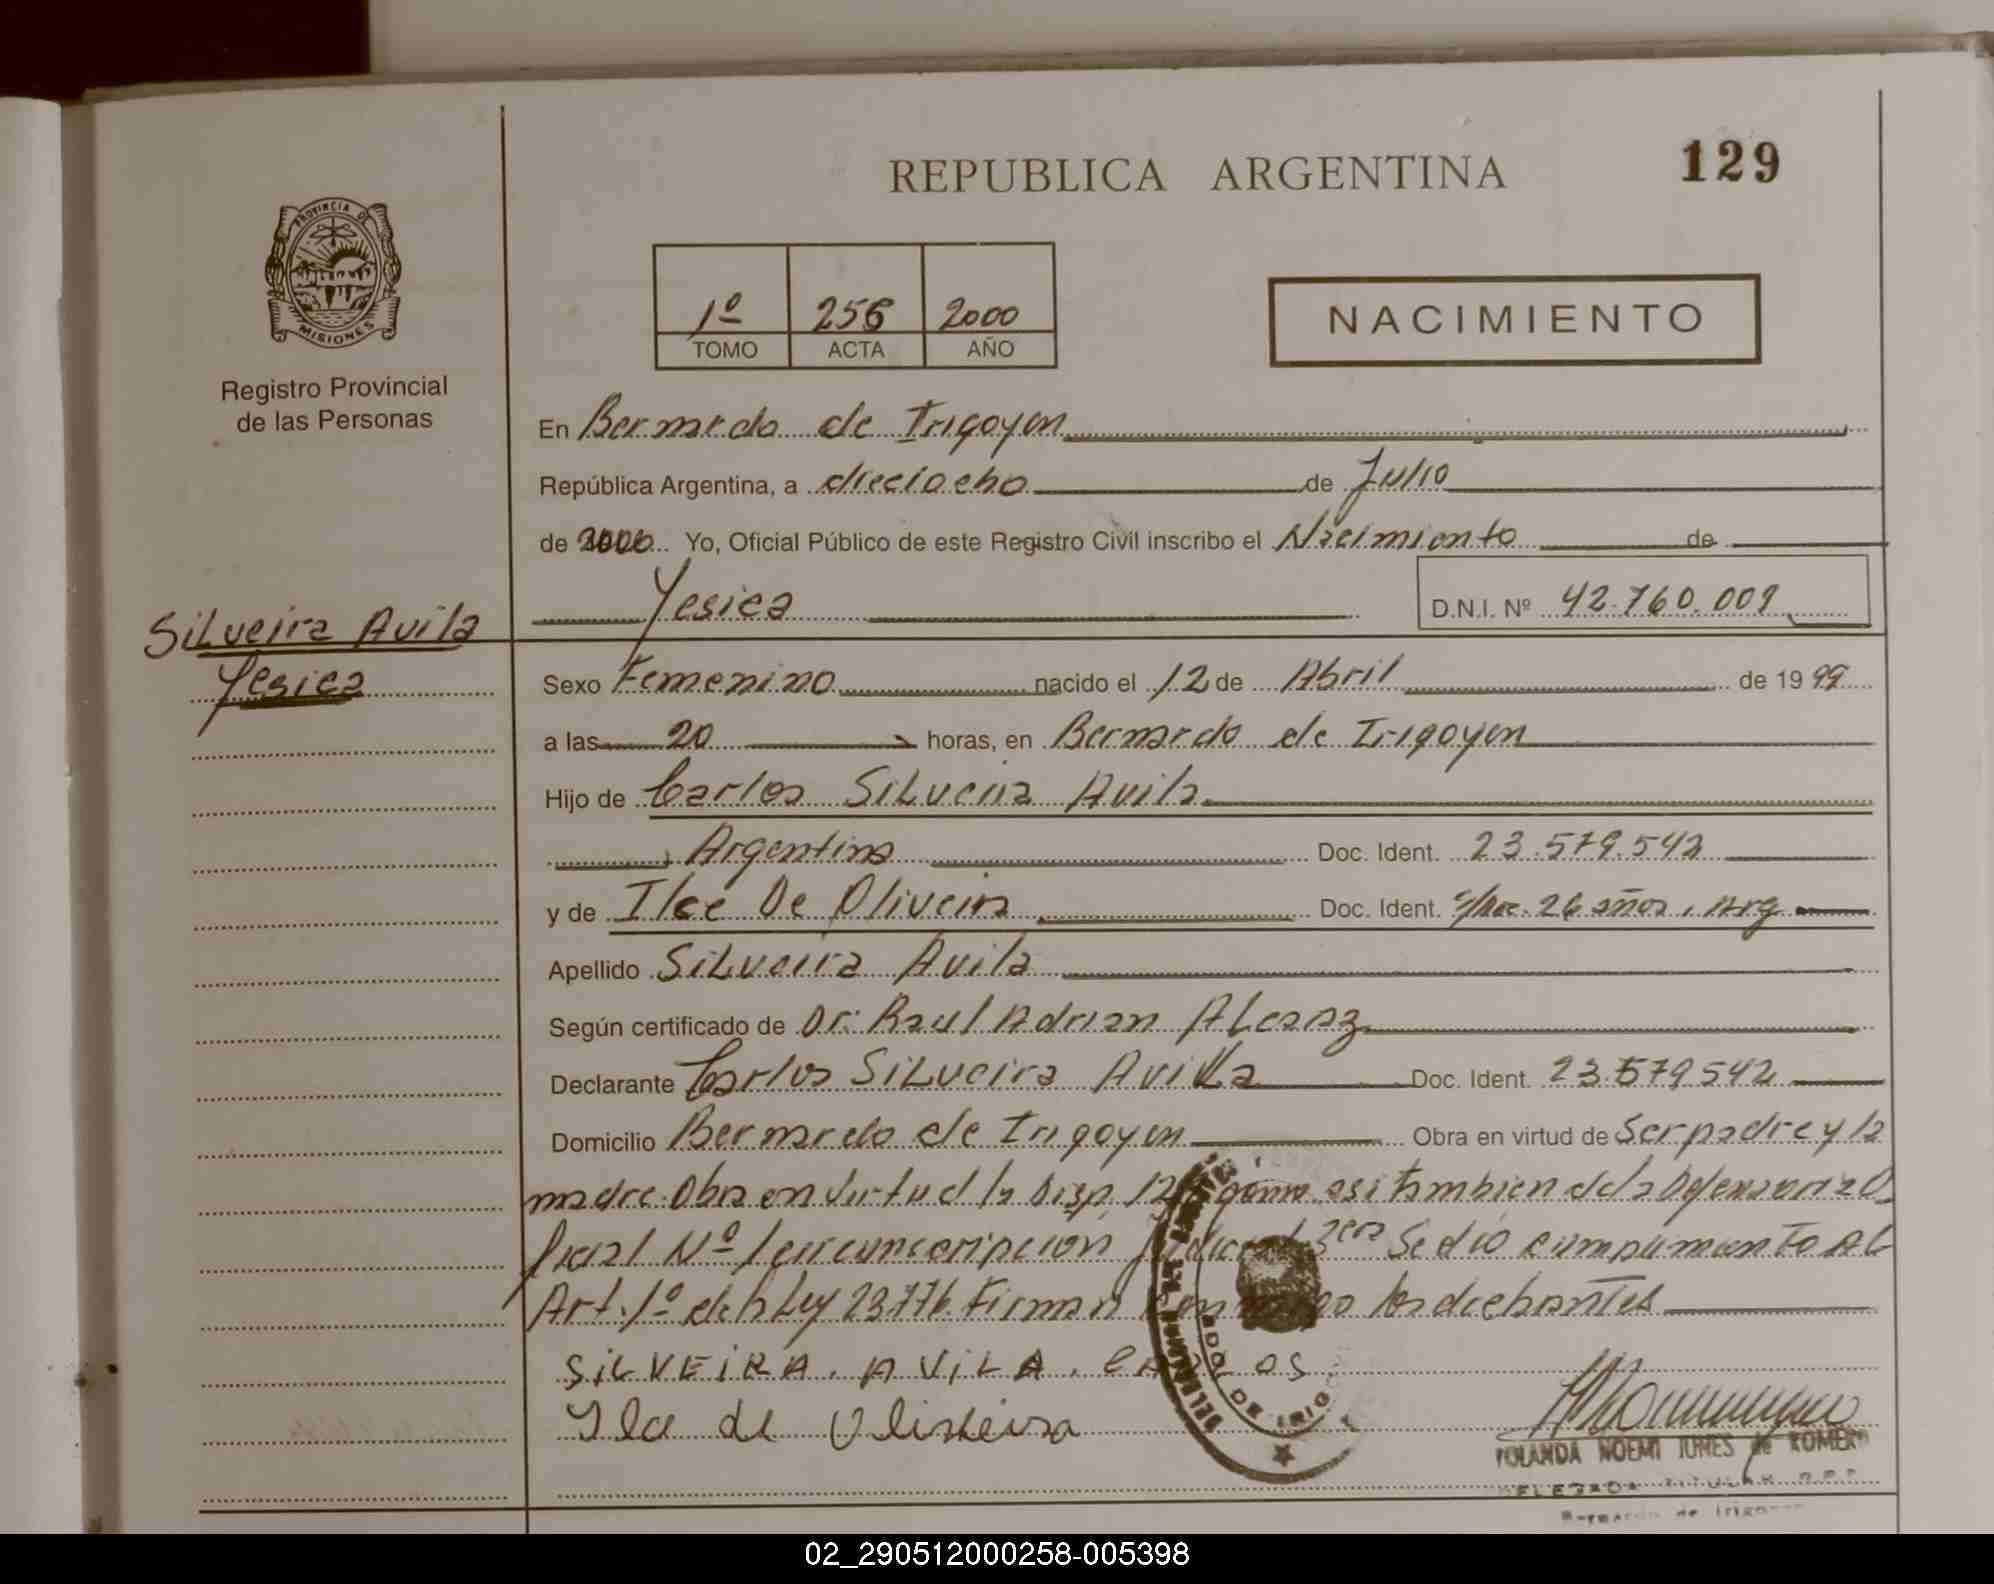 REPUBLICA ARGENTINA
129
PROVINCIA DE
MISIONES
Registro Provincial
de las Personas
1º 256 2000
TOMO ACTA AÑO
NACIMIENTO
En Bernardo de Irigoyen
República Argentina, a dieciocho de Julio
de 2000 Yo, Oficial Público de este Registro Civil inscribo el Nacimiento de
Yesica D.N.I. Nº 42.760.009
Silveira Avila
Yesica
Sexo Femenino nacido el 12 de Abril de 1999
a las 20 horas, en Bernardo de Irigoyen
Hijo de Carlos Silveira Avila
Argentino Doc. Ident. 23.579.542
y de Ilce De Oliveira Doc. Ident. s/doc. 26 años, Arg
Apellido Silveira Avila
Según certificado de Dr. Raul Adrian Alcaraz
Declarante Carlos Silveira Avila Doc. Ident. 23.579542
Domicilio Bernardo de Irigoyen Obra en virtud de Ser padre y la
madre Obra en virtud la Disp. como asi tambien de la Defensoria O
ficial Nº 1 circunscripcion Judicial 3era Se dio cumplimiento al
Art. 1º de la Ley 23776. Firman conmigo los declarantes
SILVEIRA. AVILA. CARLOS
Ilce de Oliveira
YOLANDA NOEMI de ROMERO
DELEGADA TITULAR R.P.P.
Bernardo de Irigoyen
02_290512000258-005398